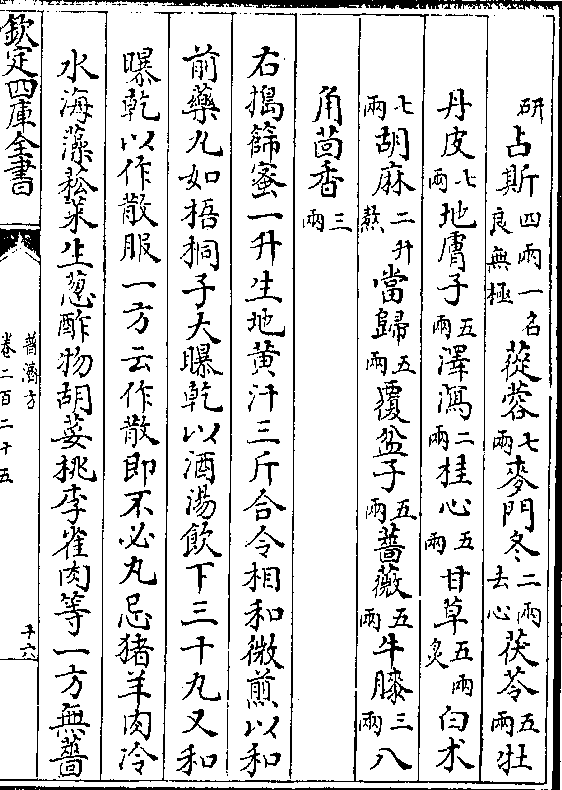 研占斯四兩一名良無極蓯蓉七兩麥門冬二兩去心茯苓五兩牡
丹皮七兩地膚子五兩澤瀉二兩桂心五兩甘草五兩炙白术
七兩胡麻二升熬當歸五兩覆盆子五兩薔薇五兩牛膝三兩八
角茴香三兩
右搗篩蜜一升生地黄汁三斤合令相和微煎以和
前藥丸如梧桐子大曝乾以酒湯飲下三十丸又和
曝乾以作散服一方云作散即不必丸忌猪羊肉冷
水海藻菘菜生葱酢物胡荽桃李雀肉等一方無薔
欽定四庫全書
普濟方
卷二百二十五
十六